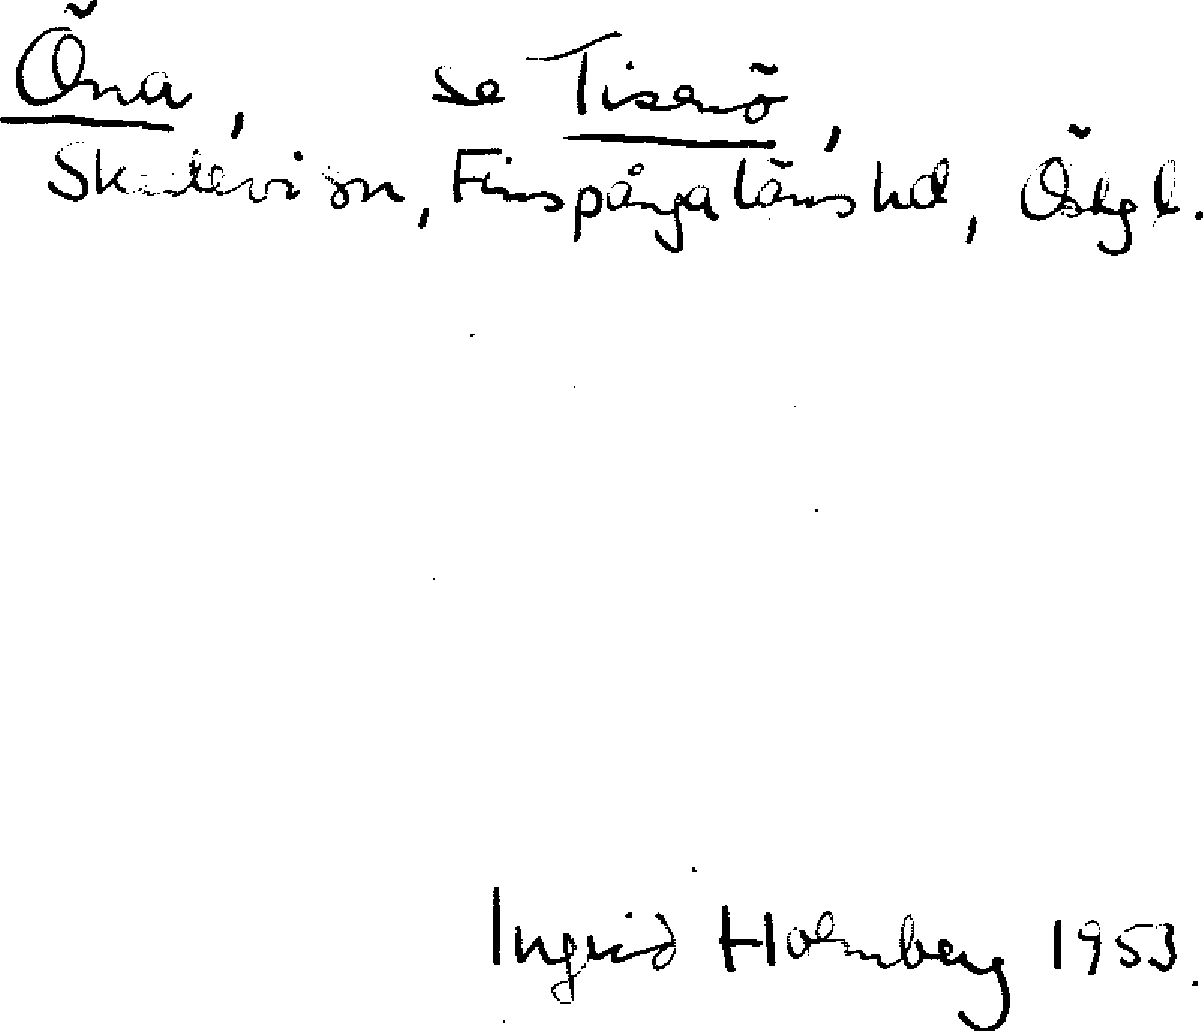 Öna, se Tisenö,
Skedevi sn, Finspånga läns hd, Östgl.
Ingrid Holmberg 1953.